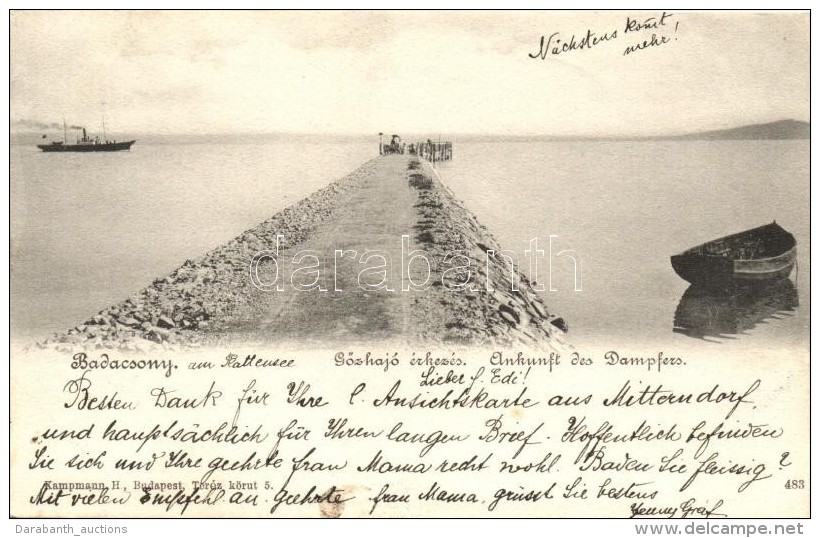 Nächstens komt
mehr!
darabanth
Badacsony. am Plattensee Gőzhajó érkezés. Ankunft des Dampfers.
Lieber f. Edi!
Besten Dank für Ihre l. Ansichtskarte aus Mitterndorf,
und hauptsächlich für Ihren langen Brief. Hoffentlich befinden
Sie sich und Ihre geehrte frau Mama recht wohl. Baden Sie fleissig?
Kampmann H., Budapest, Teréz körut 5. 483
Mit vielen Empfehl an geehrte frau Mama, grüsst Sie bestens
Darabanth_auctions http://www.delcampe.net